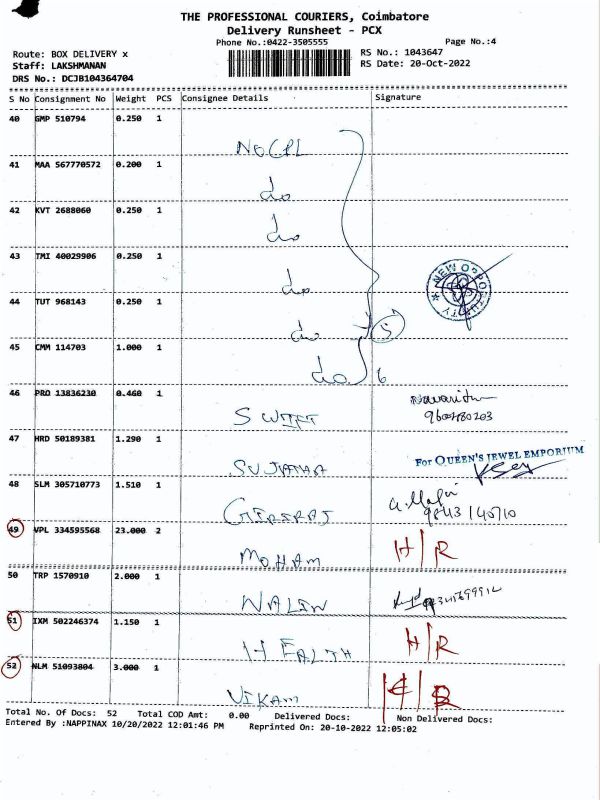 THE PROFESSIONAL COURIERS, Coimbatore
Delivery Runsheet - PCX
Phone No.:0422-3505555 Page No.:4
Route: BOX DELIVERY x RS No.: 1043647
Staff: LAKSHMANAN RS Date: 20-Oct-2022
DRS No.: DCJB104364704
S No Consignment No Weight PCS Consignee Details Signature
40 GMP 510794 0.250 1
NOCPL
41 MAA 567770572 0.200 1
do
42 KVT 2688060 0.250 1
do
43 TMI 40029906 0.250 1
do
NEW OPPORTUNITY
44 TUT 968143 0.250 1
do 5
45 CMM 114703 1.000 1
do 6
46 PRO 13836230 0.460 1
SWIFT
47 HRD 50189381 1.290 1
SUJATHA For QUEEN'S JEWEL EMPORIUM
48 SLM 305710773 1.510 1
GIRIRAJ
49 VPL 334595568 23.000 2
MOHAM H/R
50 TRP 1570910 2.000 1
51 IXM 502246374 1.150 1
HEALTH H/R
52 NLM 51093804 3.000 1
VIKAM
Total No. Of Docs: 52 Total COD Amt: 0.00 Delivered Docs: Non Delivered Docs:
Entered By :NAPPINAX 10/20/2022 12:01:46 PM Reprinted On: 20-10-2022 12:05:02